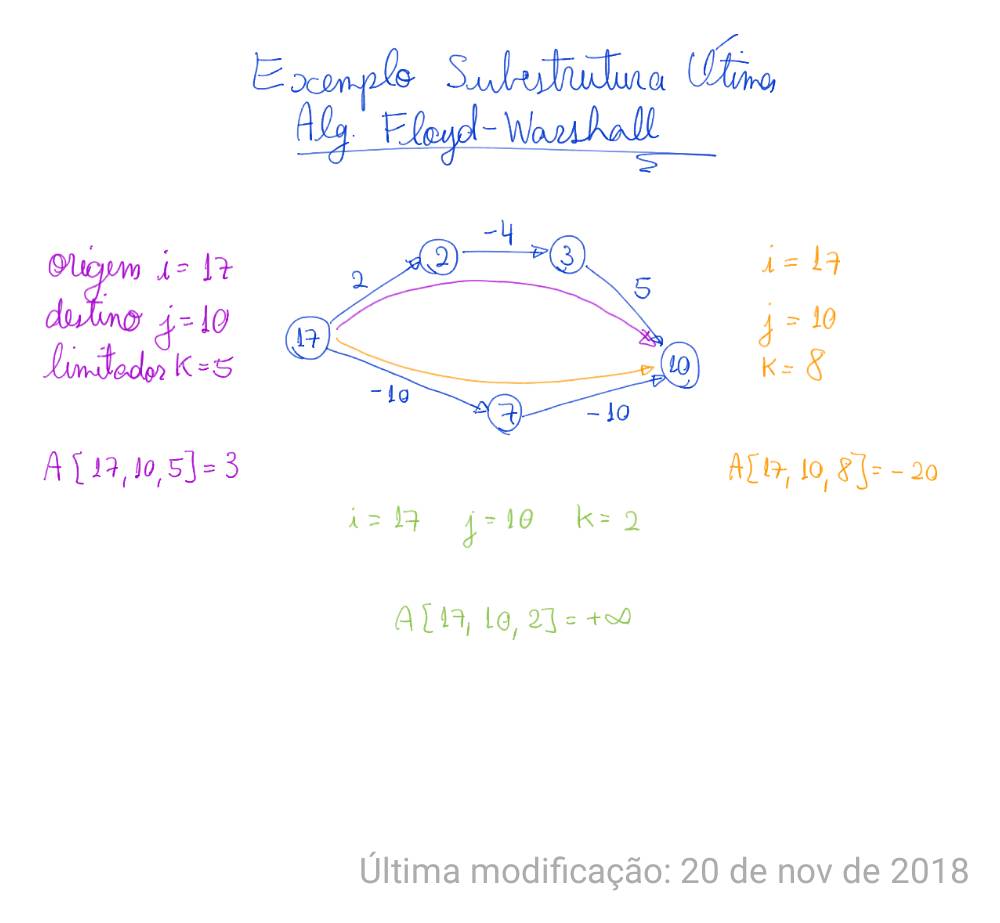 Exemplo Subestrutura Ótima
Alg. Floyd-Warshall
origem i = 17
destino j = 10
limitador k = 5
A[17, 10, 5] = 3
2
-4
5
-10
-10
17
2
3
7
10
i = 17
j = 10
k = 8
A[17, 10, 8] = -20
i = 17 j = 10 k = 2
A[17, 10, 2] = +∞
Última modificação: 20 de nov de 2018